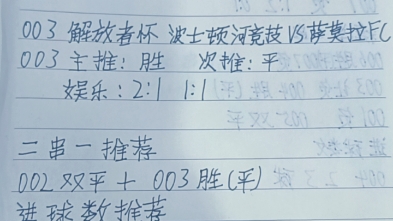 003 解放者怀 波士顿河竞技 VS 萨莫拉FC
003 主推：胜 次推：平
娱乐：2:1 1:1
二串一推荐
002 双平 + 003 胜(平)
进球数推荐